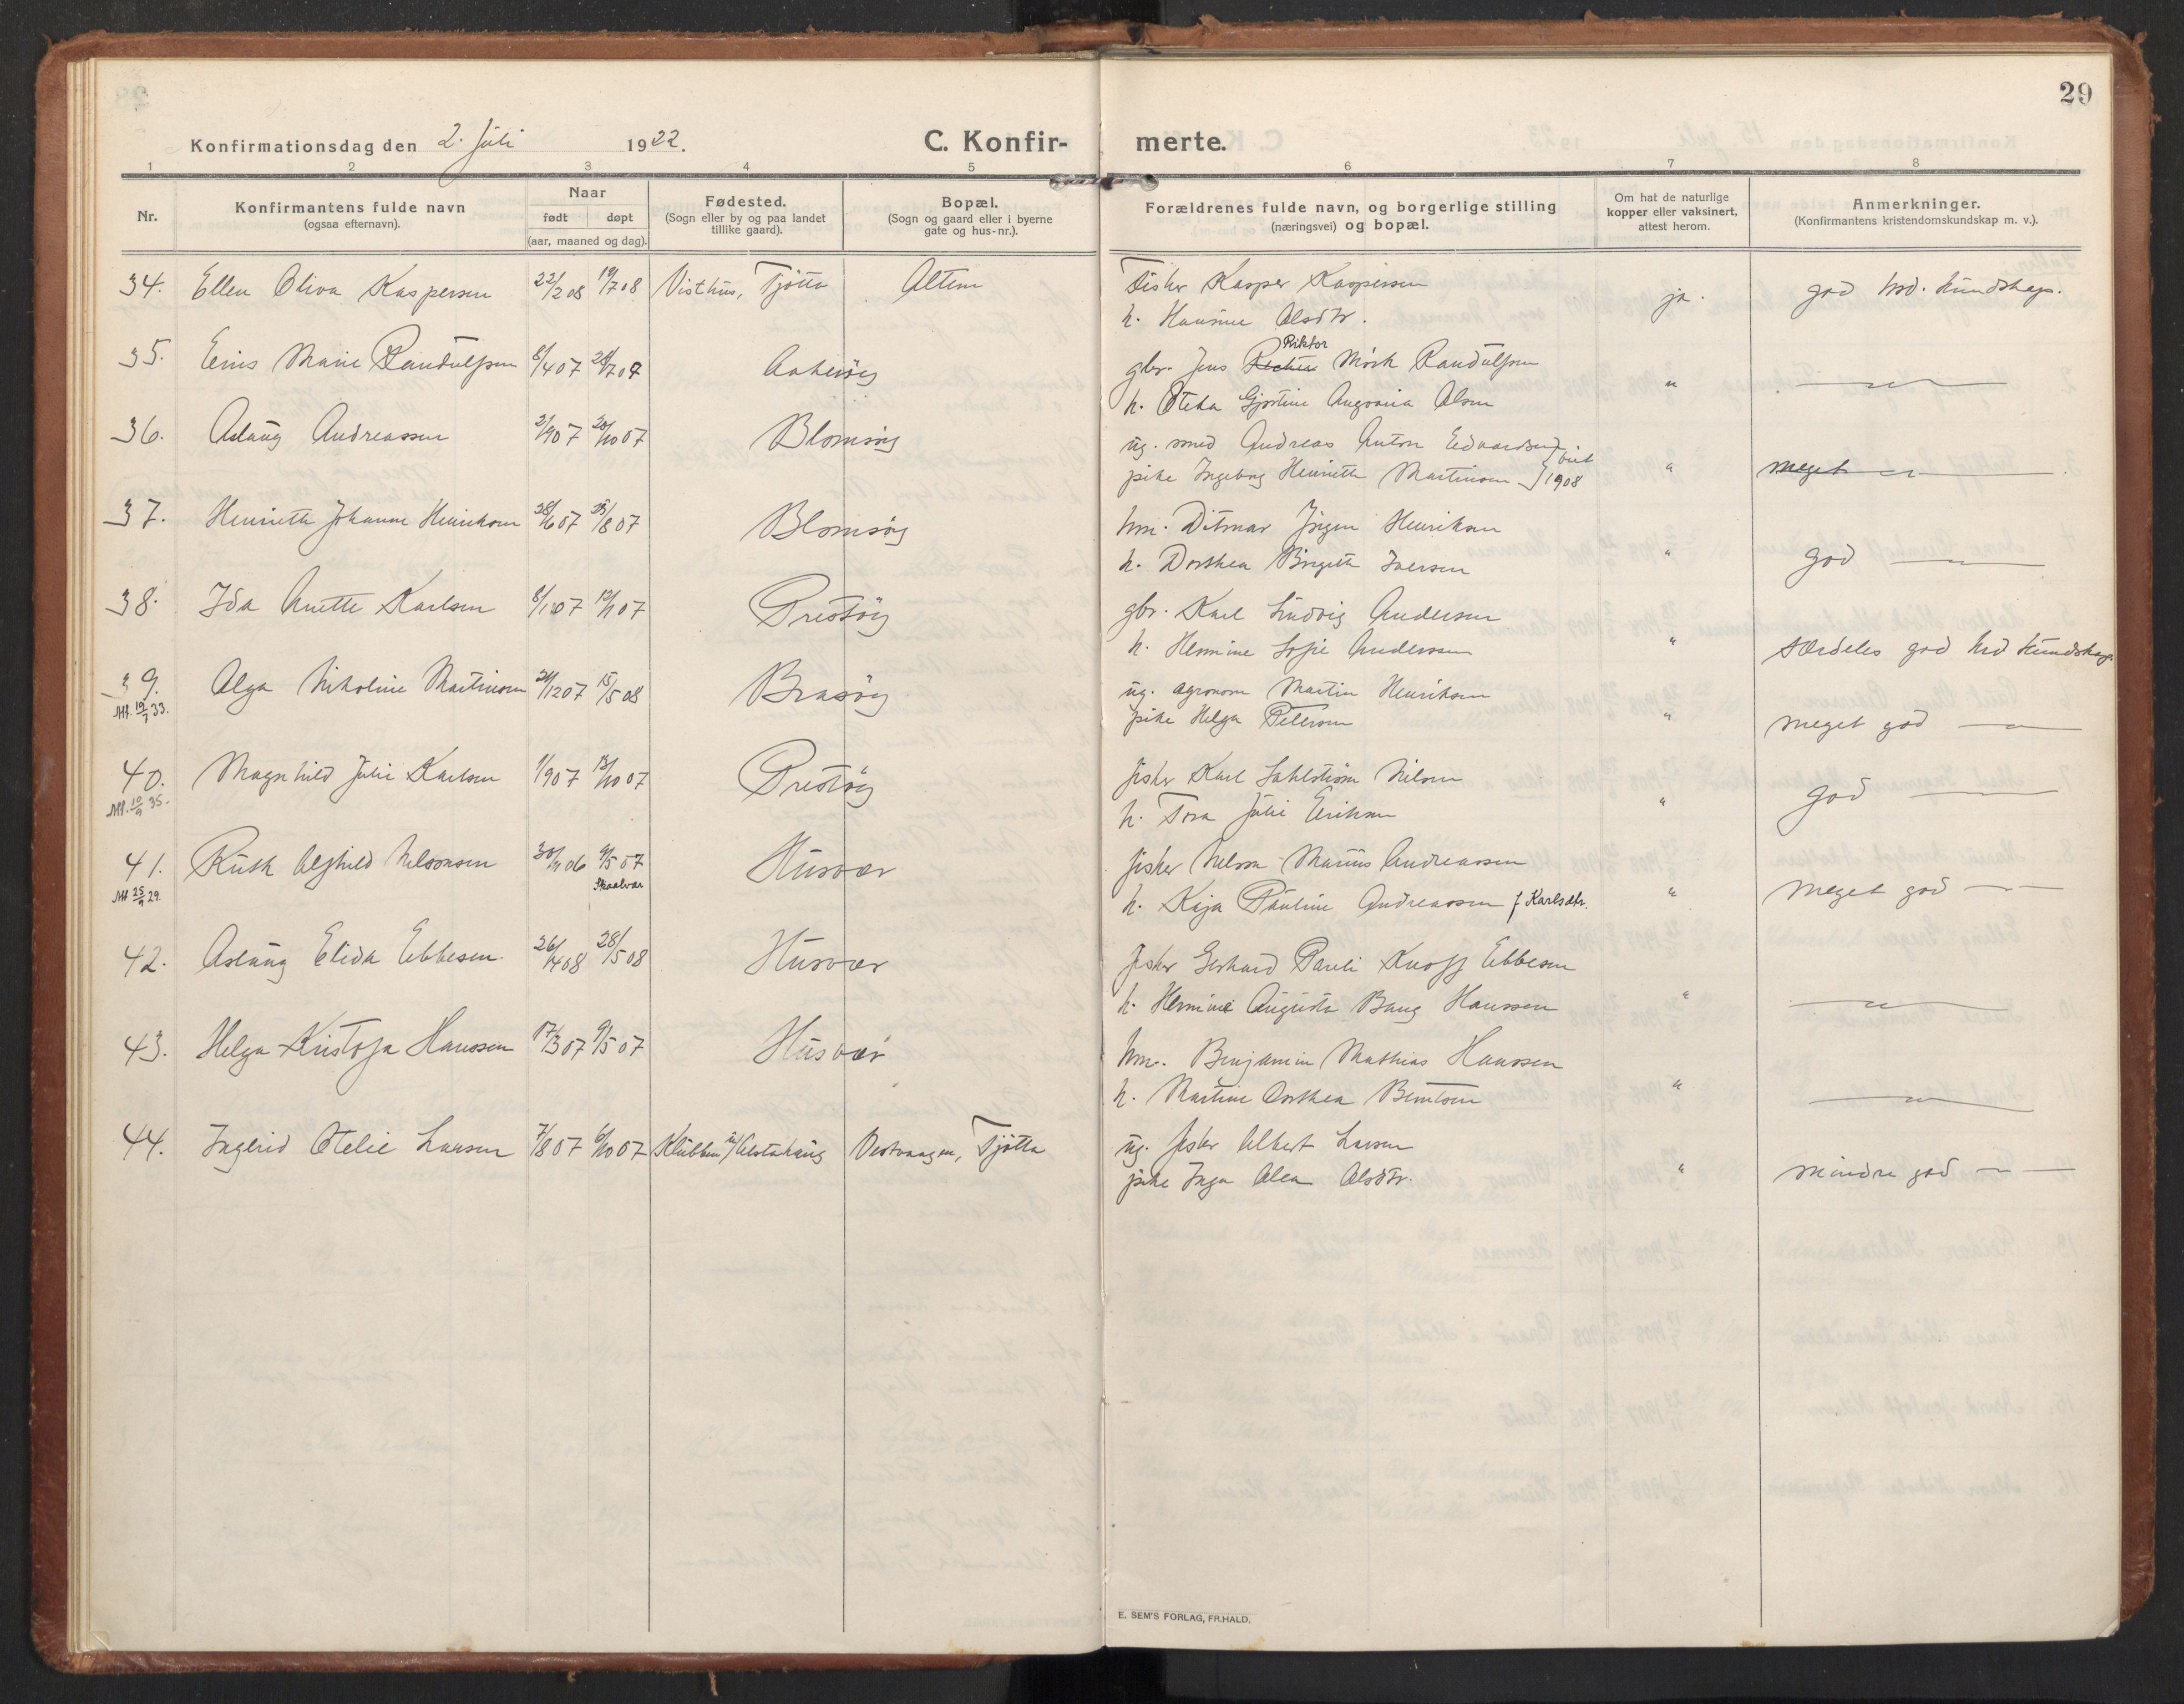 29
Konfirmationsdag den 2. Juli 1922.
C. Konfirmerte.
1 2 3 4 5 6 7 8
Nr.
Konfirmantens fulde navn
(ogsaa efternavn).
Naar
født døpt
(aar, maaned og dag).
Fødested.
(Sogn eller by og paa landet
tillike gaard).
Bopæl.
(Sogn og gaard eller i byerne
gate og hus-nr.).
Forældrenes fulde navn, og borgerlige stilling
(næringsvei) og bopæl.
Om hat de naturlige
kopper eller vaksinert,
attest herom.
Anmerkninger.
(Konfirmantens kristendomskundskap m. v.).
34. Ellen Oliva Kaspersen 22/2 08 19/7 08 Visthus, Tjøtta Altern
Fisker Kasper Kaspersen
h. Hansine Olsdtr. ja. god krd. kundskap.
35. Marie Randulfsen 8/4 07
gbr. Jens Rektor Mörk Randulfsen
h. Oteka Gjertine Olsen " — " —
36. Aslaug Andreassen 2/9 07 20/10 07 Blomsøy
ug. smed Andreas Anton Edvardsen
pike Ingeborg Henriette Martinsen } 1908 " meget — " —
37. Henriette Johanne Henriksen 28/6 07 25/8 07 Blomsøy
hm. Ditmar Jörgen Henriksen
h. Dorthea Birgitte Iversen " god —
38. Ida Anette Karlsen Prestøy
gbr. Karl Ludvig Andersen
h. Hermine Sofie Anderssen " særdeles god krd kundskap
39. Olga Nikoline Martinsen 21/12 07 15/5 08 Brasøy
Att. 19/7 33.
ug. agronom Martin Henriksen
pike Helga Petersen " meget god — " —
40. Magnhild Julie Karlsen 1/9 07 13/10 07 Prestøy
Att. 10/9 35.
fisker Karl Sahlström Nilsen
h. Tora Julie Eriksen " god —
41. Ruth Alfhild Nelsonsen 30/11 06 9/5 07 Husvær
Att 25/9 29. Skaalvær
fisker Nelson Marius Andreassen
h. Kaja Pauline Andreassen f. Karlsdtr. " meget god — —
42. Aslaug Elida Ebbesen. 26/4 08 28/5 08 Husvær
fisker Gerhard Pareli Knoff Ebbesen
h. Hermine Augusta Bang Hanssen " — " —
43. Helga Kristofa Hanssen 17/3 07 9/5 07 Husvær
hm. Benjamin Mathias Hanssen
h. Martine Dorthea Berntsen " — " —
44. Ingerid Otelie Larsen 7/8 07 6/10 07 Klubben i Alstahaug Vestvaagen, Tjøtta
ug. fisker Albert Larsen
pike Inga Alea Olsdtr. " mindre god — " —
E. SEM'S FORLAG, FR.HALD.